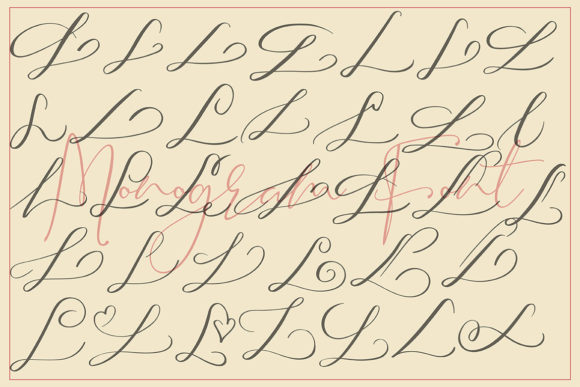 L L L L L L L
L L L L L L L
Monogram Font
L L L L L L L
L L L L L L
L L L L L L L